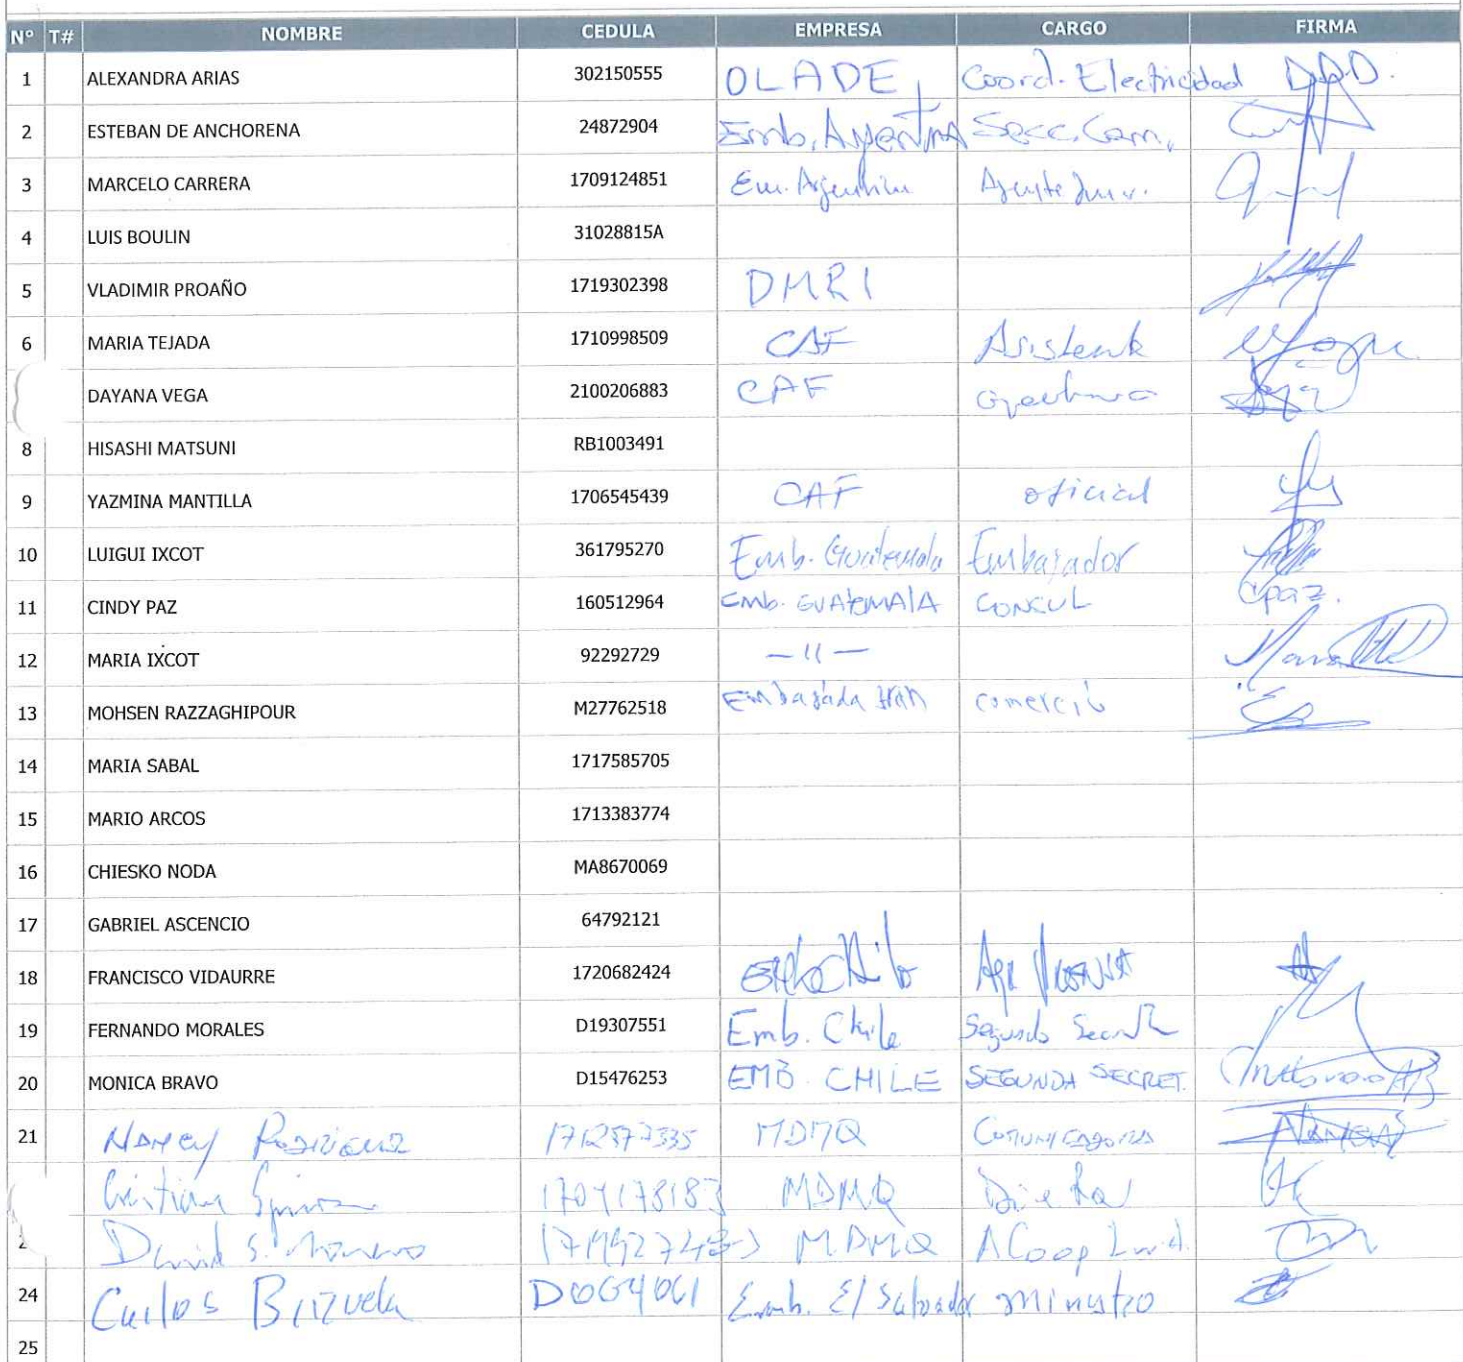 N° T# NOMBRE CEDULA EMPRESA CARGO FIRMA
1 ALEXANDRA ARIAS 302150555 OLADE Coord. Electricidad
2 ESTEBAN DE ANCHORENA 24872904 Emb. Argentina Secc. Com.
3 MARCELO CARRERA 1709124851 Em. Argentina
4 LUIS BOULIN 31028815A
5 VLADIMIR PROAÑO 1719302398 DMRI
6 MARIA TEJADA 1710998509 CAF Asistente
DAYANA VEGA 2100206883 CAF
8 HISASHI MATSUNI RB1003491
9 YAZMINA MANTILLA 1706545439 CAF oficial
10 LUIGUI IXCOT 361795270 Emb. Guatemala Embajador
11 CINDY PAZ 160512964 Emb. GUATEMALA CONSUL Cpaz.
12 MARIA IXCOT 92292729 — 11 —
13 MOHSEN RAZZAGHIPOUR M27762518 Embajada Iran comercio
14 MARIA SABAL 1717585705
15 MARIO ARCOS 1713383774
16 CHIESKO NODA MA8670069
17 GABRIEL ASCENCIO 64792121
18 FRANCISCO VIDAURRE 1720682424
19 FERNANDO MORALES D19307551 Emb. Chile Segundo
20 MONICA BRAVO D15476253 EMB. CHILE SEGUNDA SECRET.
21 Nancy MDMQ
MDMQ
David MDMQ
24 Carlos Brizuela Emb. El Salvador Ministro
25